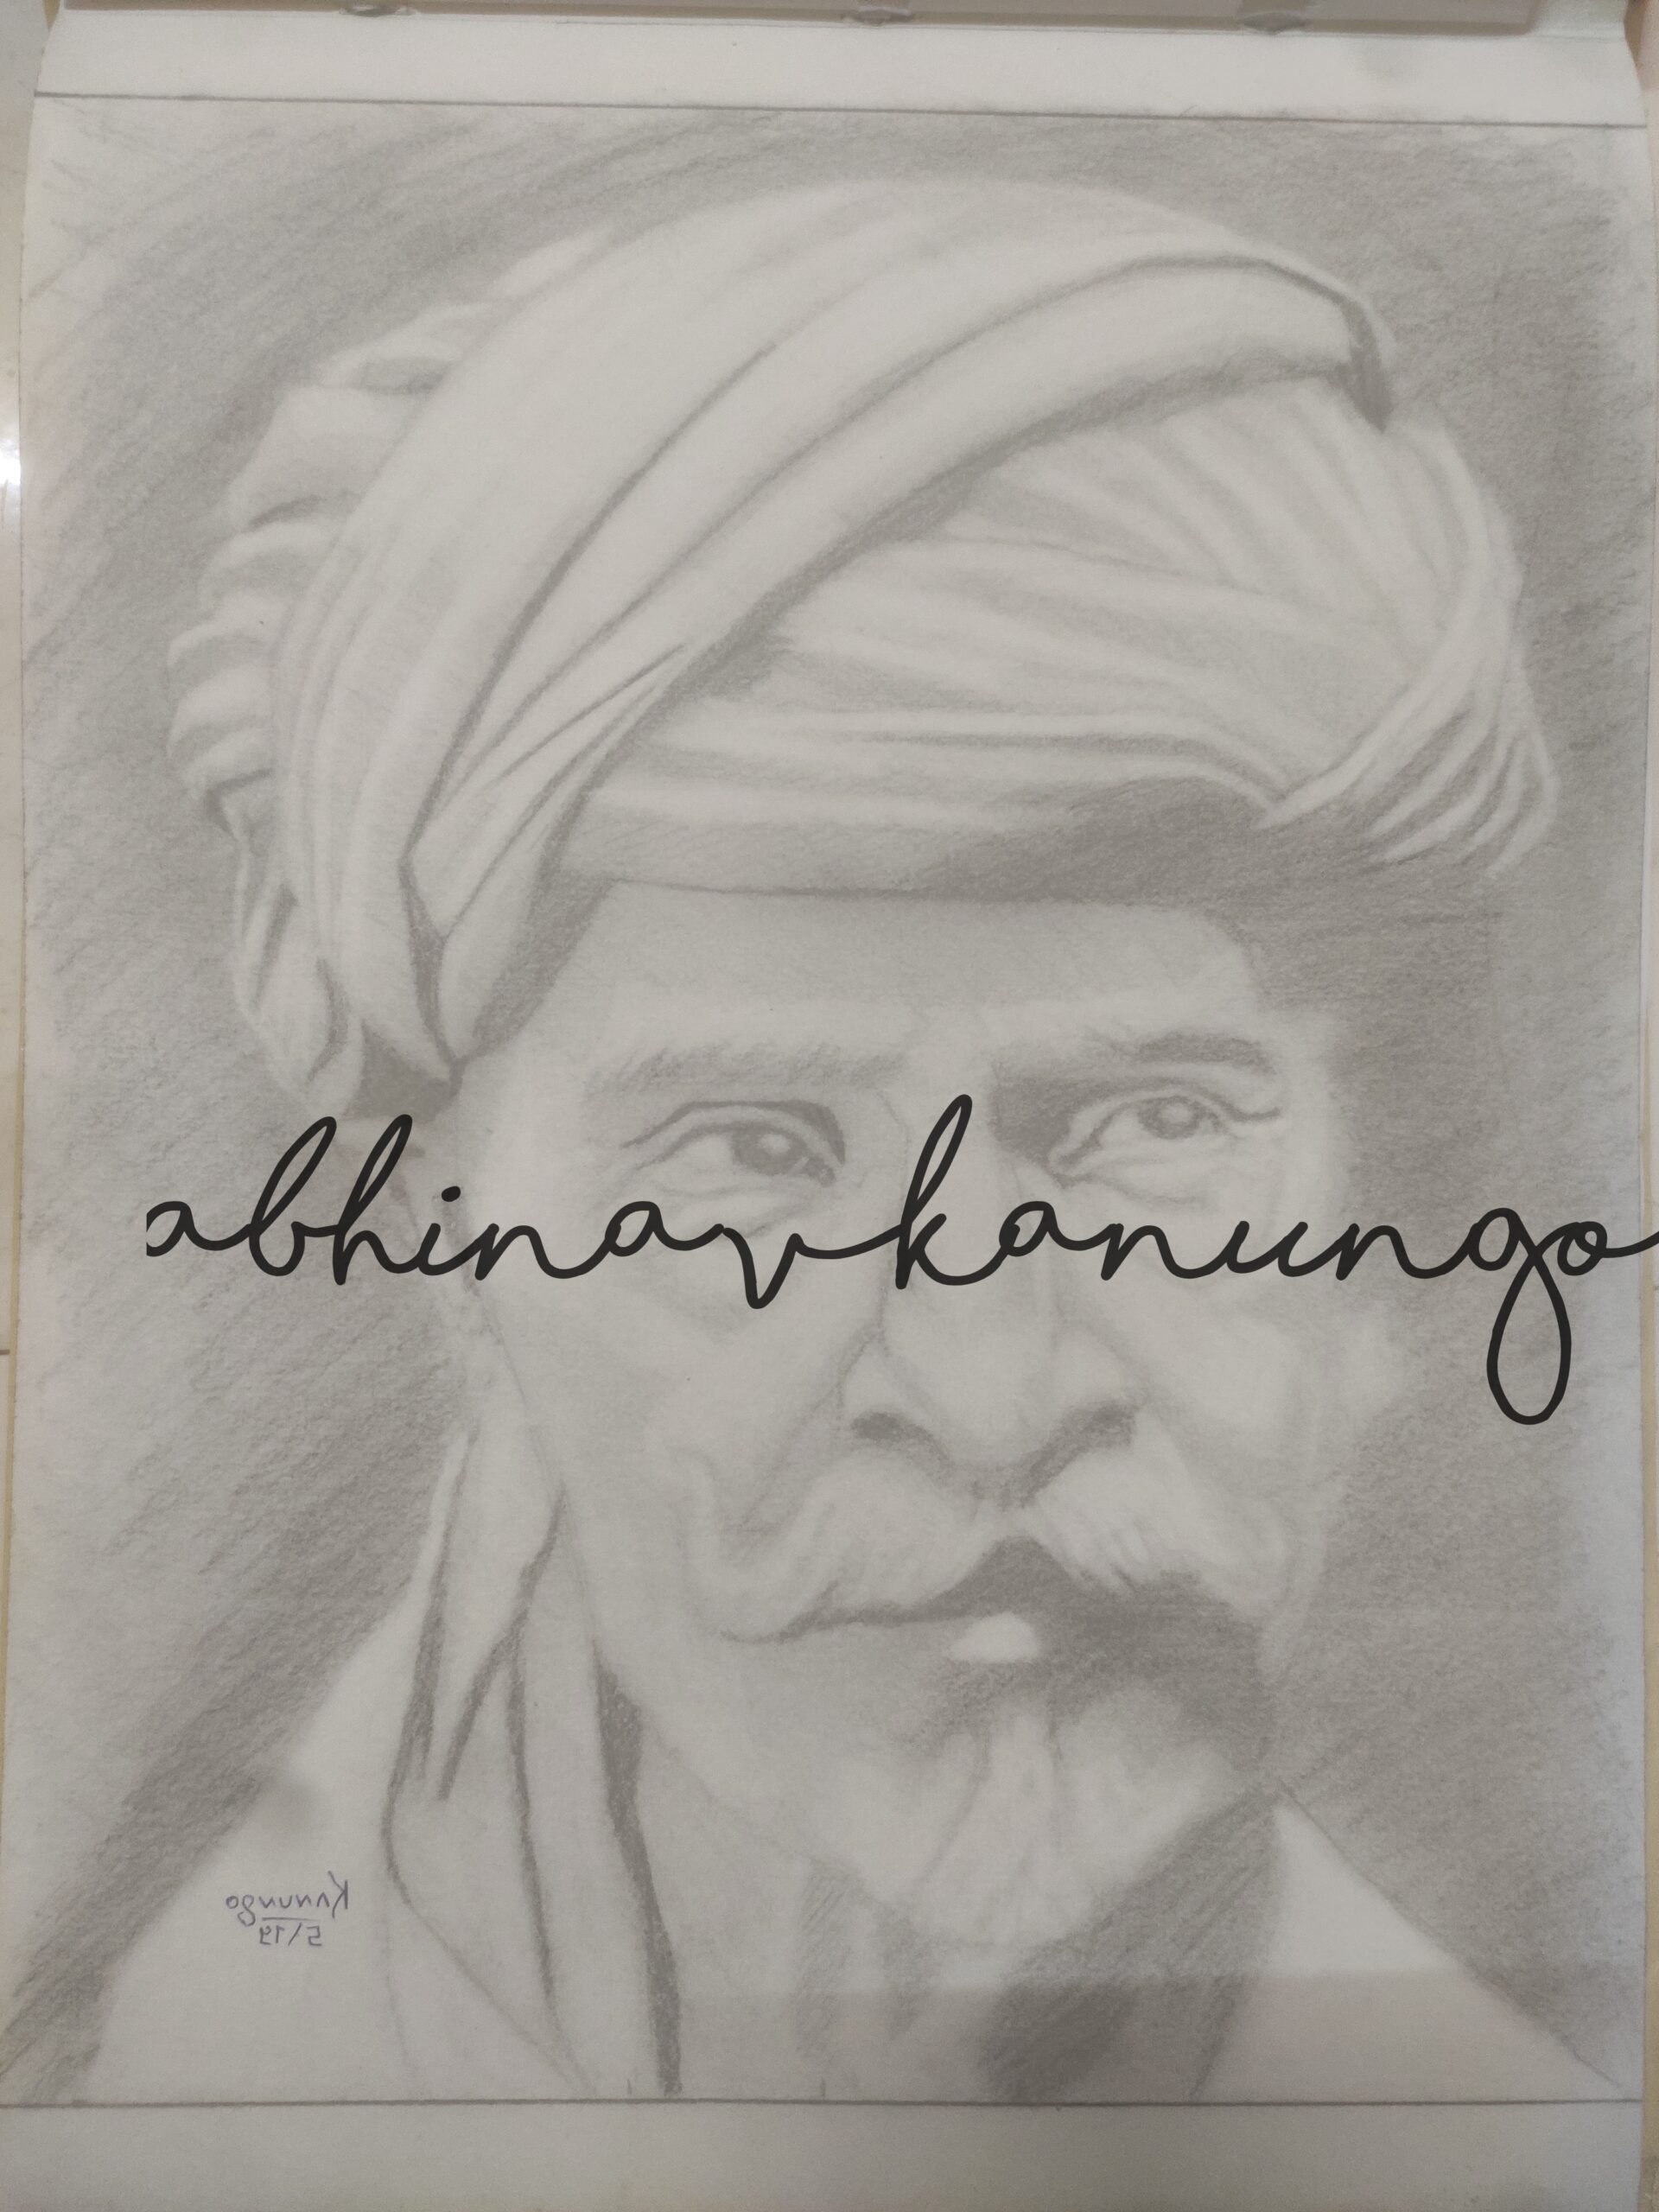 abhinavkanungo
Kanungo
5/19